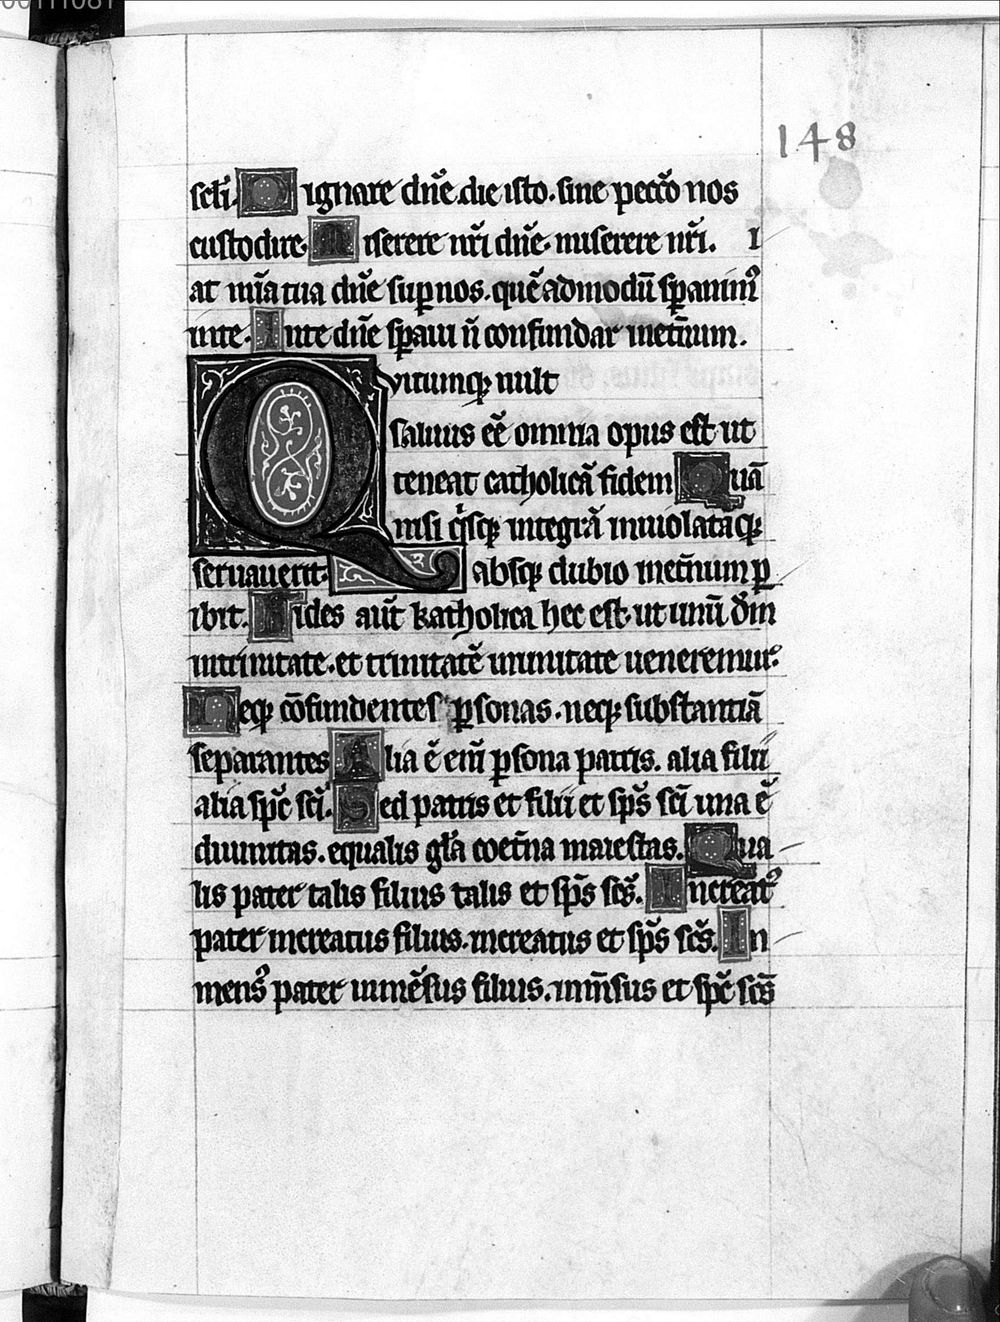 148
scłi. Dignare dñe die isto. sine pecc̄o nos
custodire. Miserere nr̄i dñe. miserere nr̄i. I
at mīa tua dñe sup nos. quē admodū spauim᷒
in te. In te dñe spaui ñ confundar inet̄num.
Quicumq; uult
saluus eē omnia opus est ut
teneat catholicā fidem Quā
nisi qͥsq; integrā inuiolatāq;
seruauerit. absq; dubio inet̄num p
ibit. Fides aut̄ katholica hec est. ut unū dm̄
in trinitate. et trinitatē in unitate ueneremur.
Neq; cōfundentes ꝑsonas. neq; substantiā
separantes Alia ē eni᷒ ꝑsona patris. alia filii
alia spc̄ sc̄i. Sed patris et filii et sp̄s sc̄i una ē
diuinitas. equalis gl̄a coet̄na maiestas. Qua
lis pater talis filius talis et sp̄s sc̄s. Increat᷒
pater increatus filius. increatus et sp̄s sc̄s. In
mens᷒ pater inmēsus filius. inm̄sus et spc̄ sc̄s